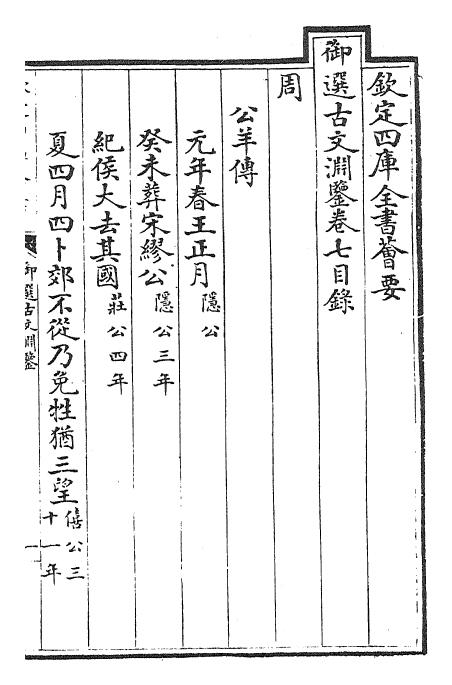 欽定四庫全書薈要
御選古文淵鑒卷七目錄
周
公羊傳
元年春王正月隱公
癸未葬宋繆公隱公三年
紀侯大去其國莊公四年
夏四月四卜郊不從乃免牲猶三望僖公三十一年
御選古文淵鑒